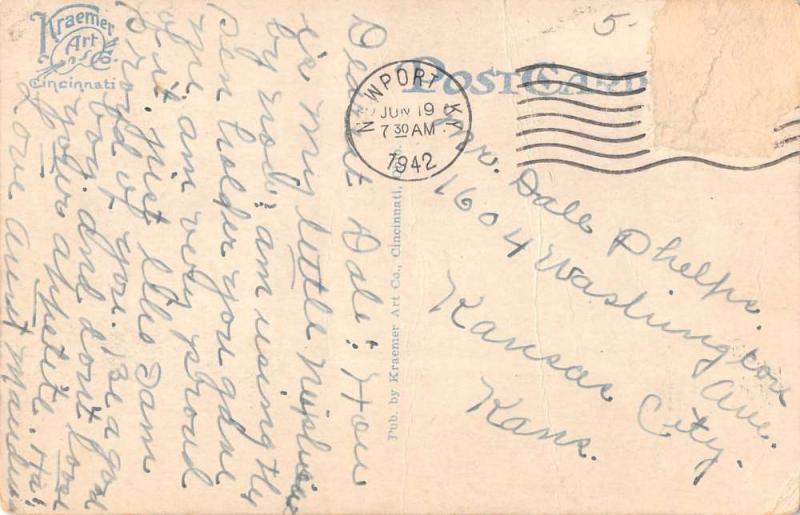 Kraemer
Art
Co.
Cincinnati
POST CARD
5-
NEWPORT KY.
JUN 19
7 30 AM
1942
Pub. by Kraemer Art Co., Cincinnati,
Dearest Dale: How
is my little Nephew
by now; am using thy
pen holder you gave
me am very proud
of it, just like I am
proud of you. Be a good
boy and don't lose
your appetite. Ha!
Love Aunt
Dale Phelps.
1604 Washington Ave.
Kansas City.
Kans.